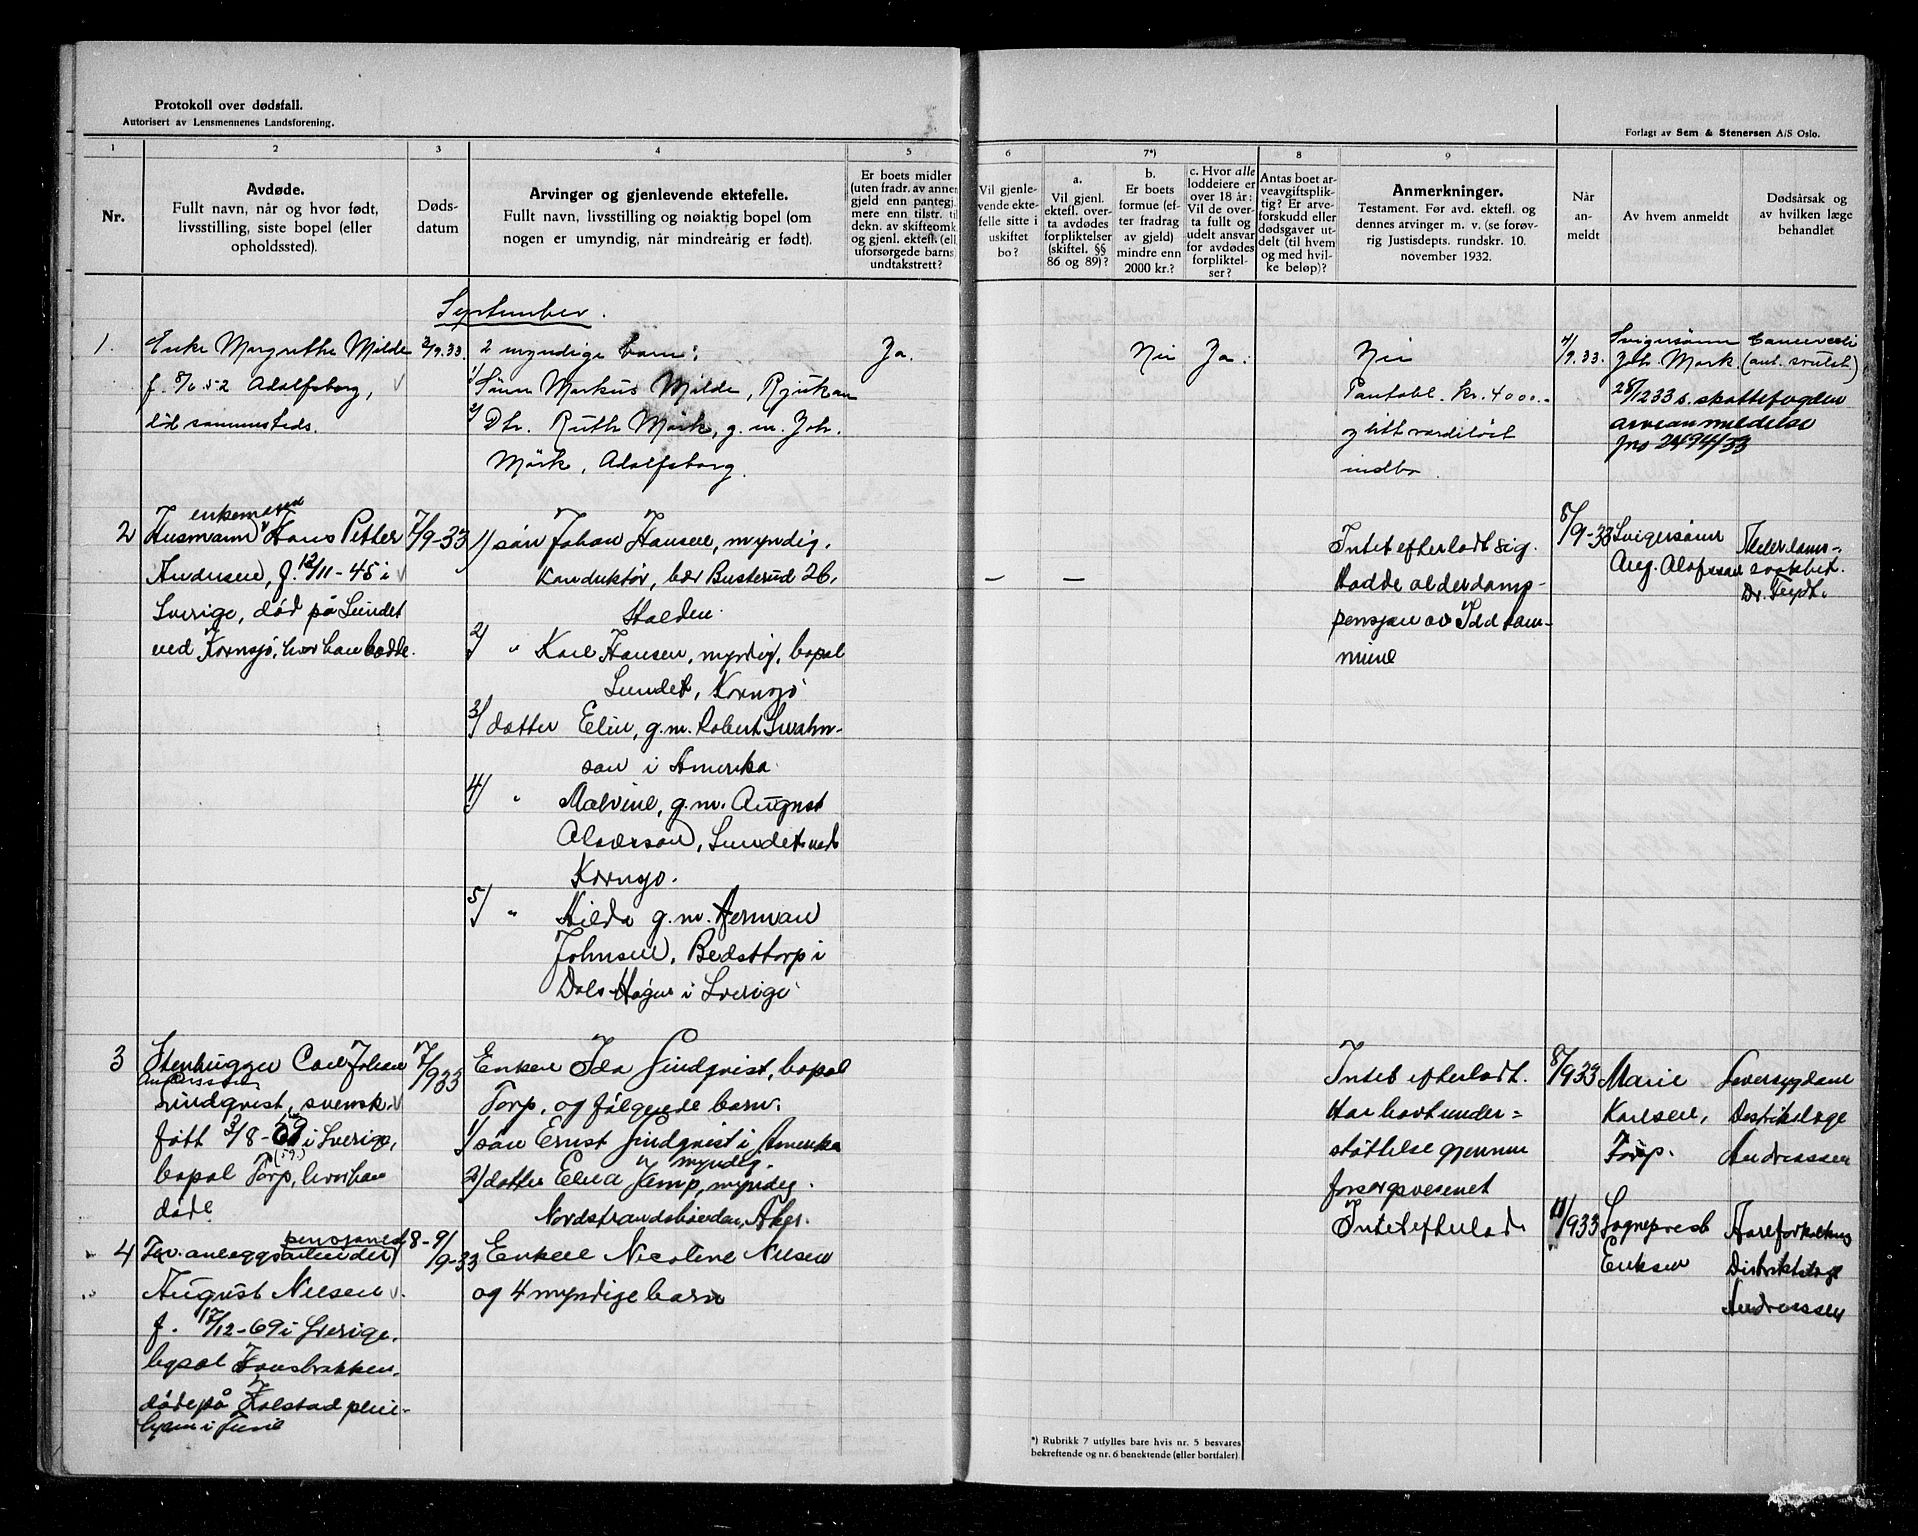 Protokoll over dødsfall.
Autorisert av Lensmennenes Landsforening.
Forlagt av Sem & Stenersen A/S Oslo.
1
2
3
4
5
6
7*)
8
9
Nr.
Avdøde.
Fullt navn, når og hvor født,
livsstilling, siste bopel (eller
opholdssted).
Døds-
datum
Arvinger og gjenlevende ektefelle.
Fullt navn, livsstilling og nøiaktig bopel (om
nogen er umyndig, når mindreårig er født).
Er boets midler
(uten fradr. av annen
gjeld enn pantegj.
mere enn tilstr. til
dekn. av skifteomk.
og gjenl. ektef. (ell.
uforsørgede barns)
undtaksrett?
Vil gjenle-
vende ekte-
felle sitte i
uskiftet
bo?
a.
Vil gjenl.
ektef. over-
ta avdødes
forpliktelser
(skiftel. §§
86 og 89)?
b.
Er boets
formue (ef-
ter fradrag
av gjeld)
mindre enn
2000 kr.?
c. Hvor alle
loddeiere er
over 18 år:
Vil de over-
ta fullt og
udelt ansvar
for avdødes
forpliktel-
ser?
Antas boet ar-
veavgiftsplik-
tig? Er arve-
forskudd eller
dødsgaver ut-
delt (til hvem
og med hvil-
ke beløp)?
Anmerkninger.
Testament. Før avd. ektefl. og
dennes arvinger m. v. (se forøv-
rig Justisdepts. rundskr. 10.
november 1932.
Når
an-
meldt
Av hvem anmeldt
Dødsårsak og
av hvilken læge
behandlet
September.
1.
Enke Margrethe Milde
f. 8/6.52 Adolfsborg,
død sammesteds.
2/9.33.
2 myndige barn:
1/ Sönn Markus Milde, Rjukan
2/ Dtr. Ruth Mörk, g. m. Joh.
Mörk, Adolfsborg.
Ja.
Nei
Ja.
Nei
Pantobl. kr. 4000.-
og litt værdilöst
indbo.
4/9.33.
Svigersönn
Joh. Mørk.
28/12 33 s. skattefogden
arveanmeldelse
jno 2494/33
2
enkemand
Husmann Hans Petter
Andersen, f. 12/11-45 i
Sverige, död på Sundet
ved Kornsjø, hvor han bodde.
7/9-33
1/ sön Johan Hansen, myndig,
Konduktör, bor Busterud 26,
Halden.
2/ " Karl Hansen, myndig, bopel
Sundet, Kornsjö
3/ datter Elin, g.m. Robert Swahn-
son i Amerika.
4/ " Malvine, g.m. August
Olaversen, Sundet ved
Kornsjo.
5/ " Hilda g.m. Herman
Johnsen, Bedsttorp i
Dals-Höger i Sverige
–
–
Intet efterladt sig.
Hadde alderdoms-
pensjon av Idd kom-
mune
8/9-33
Svigersönn
Aug. Olafssen
Alderdoms-
svakhet.
Dr. Feydt.
3
Stenhugger Carl Johan
Anderssen
Lindqvist, svensk.
født 3/8-69 i Sverige,
bopel Torp, hvor han
döde
7/933
Enken Ida Lindqvist, bopel
Torp, og følgende barn.
1/ sön Ernst Lindqvist i Amerika
myndig.
2/ datter Elna Kemp, myndig.
Nordstrandshöiden, Aker.
Intet efterladt.
Har havt under=
støttelse gjennem
forsorgsvesenet
8/933
Marie
Karlsen,
Torp.
Leversygdom
Distriktslæge
Andreassen
4
pensjonert
Frv. anleggsarbeider
August Nilsen
f. 17/12-69 i Sverige.
bopel Hansbrakken.
döde på Kolstad pleie-
hjem i Tune
8-9/9-33
Enken Nicoline Nilsen
og 4 myndige barn
Intet efterladt
11/933
Sogneprest
Eriksen
Åreforkalkning
Distriktslæge
Andreassen
*) Rubrikk 7 utfylles bare hvis nr. 5 besvares
bekreftende og nr. 6 benektende (eller bortfaler)